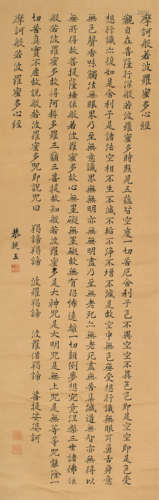 摩訶般若波羅蜜多心經
觀自在菩薩行深般若波羅蜜多時照見五蘊皆空度一切苦厄舍利子色不異空空不異色色即是空空即是色受
想行識亦復如是舍利子是諸法空相不生不滅不垢不淨不增不減是故空中無色無受想行識無眼耳鼻舌身意
無色聲香味觸法無眼界乃至無意識界無無明亦無無明盡乃至無老死亦無老死盡無苦集滅道無智亦無得以
無所得故菩提薩埵依般若波羅蜜多故心無罣礙無罣礙故無有恐怖遠離一切顛倒夢想究竟涅槃三世諸佛依
般若波羅蜜多故得阿耨多羅三藐三菩提故知般若波羅蜜多是大神咒是大明咒是無上咒是無等等咒能除一
切苦真實不虛故說般若波羅蜜多咒即說咒曰 揭諦揭諦 波羅揭諦 波羅僧揭諦 菩提娑婆訶
摩訶般若波羅蜜多心經